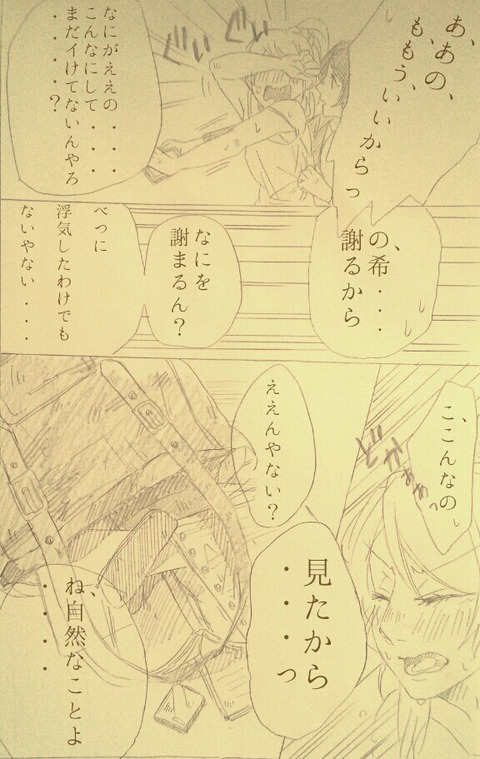 あ、あの、
も、もう、いいからっ
ぐいぐい
なにがええの・・・
こんなにして・・・・
まだイけてないんやろ
・・・・?
の、希・・・
謝るから
なにを
謝まるん?
べつに
浮気したわけでも
ないやない・・・
こ、こんなの
ええんやない?
見たから
・・・・っ
ね、自然なことよ
・・・・